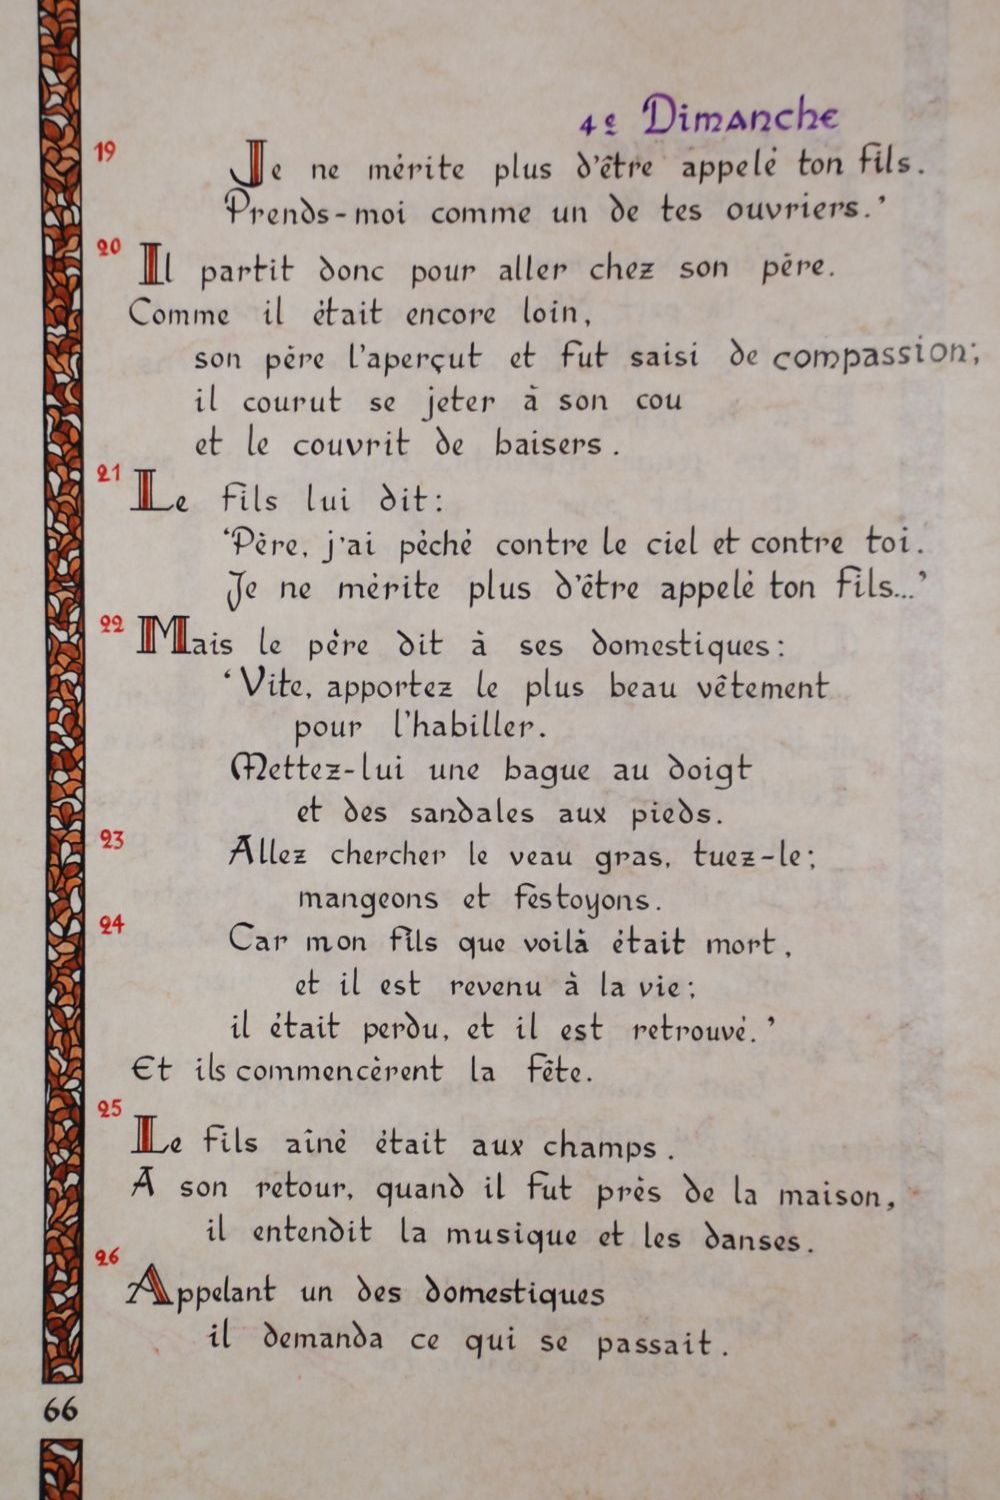 4e Dimanche
19 Je ne mérite plus d'être appelé ton fils.
Prends-moi comme un de tes ouvriers.'
20 Il partit donc pour aller chez son père.
Comme il était encore loin,
son père l'aperçut et fut saisi de compassion;
il courut se jeter à son cou
et le couvrit de baisers.
21 Le fils lui dit:
'Père, j'ai péché contre le ciel et contre toi.
Je ne mérite plus d'être appelé ton fils...'
22 Mais le père dit à ses domestiques:
'Vite, apportez le plus beau vêtement
pour l'habiller.
Mettez-lui une bague au doigt
et des sandales aux pieds.
23 Allez chercher le veau gras, tuez-le;
mangeons et festoyons.
24 Car mon fils que voilà était mort,
et il est revenu à la vie;
il était perdu, et il est retrouvé.'
Et ils commencèrent la fête.
25 Le fils aîné était aux champs.
A son retour, quand il fut près de la maison,
il entendit la musique et les danses.
26 Appelant un des domestiques
il demanda ce qui se passait.
66